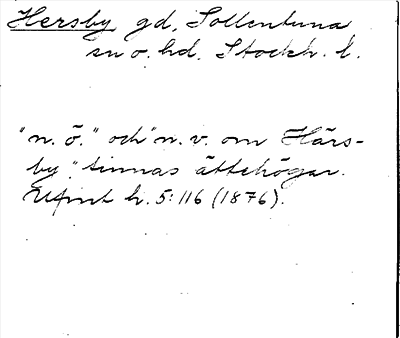 Hersby gd, Sollentuna
sn o. hd, Stockh. l.
"n. ö." och "n. v. om Härs-
by" finnas ättehögar.
UFmt h. 5:116 (1876).